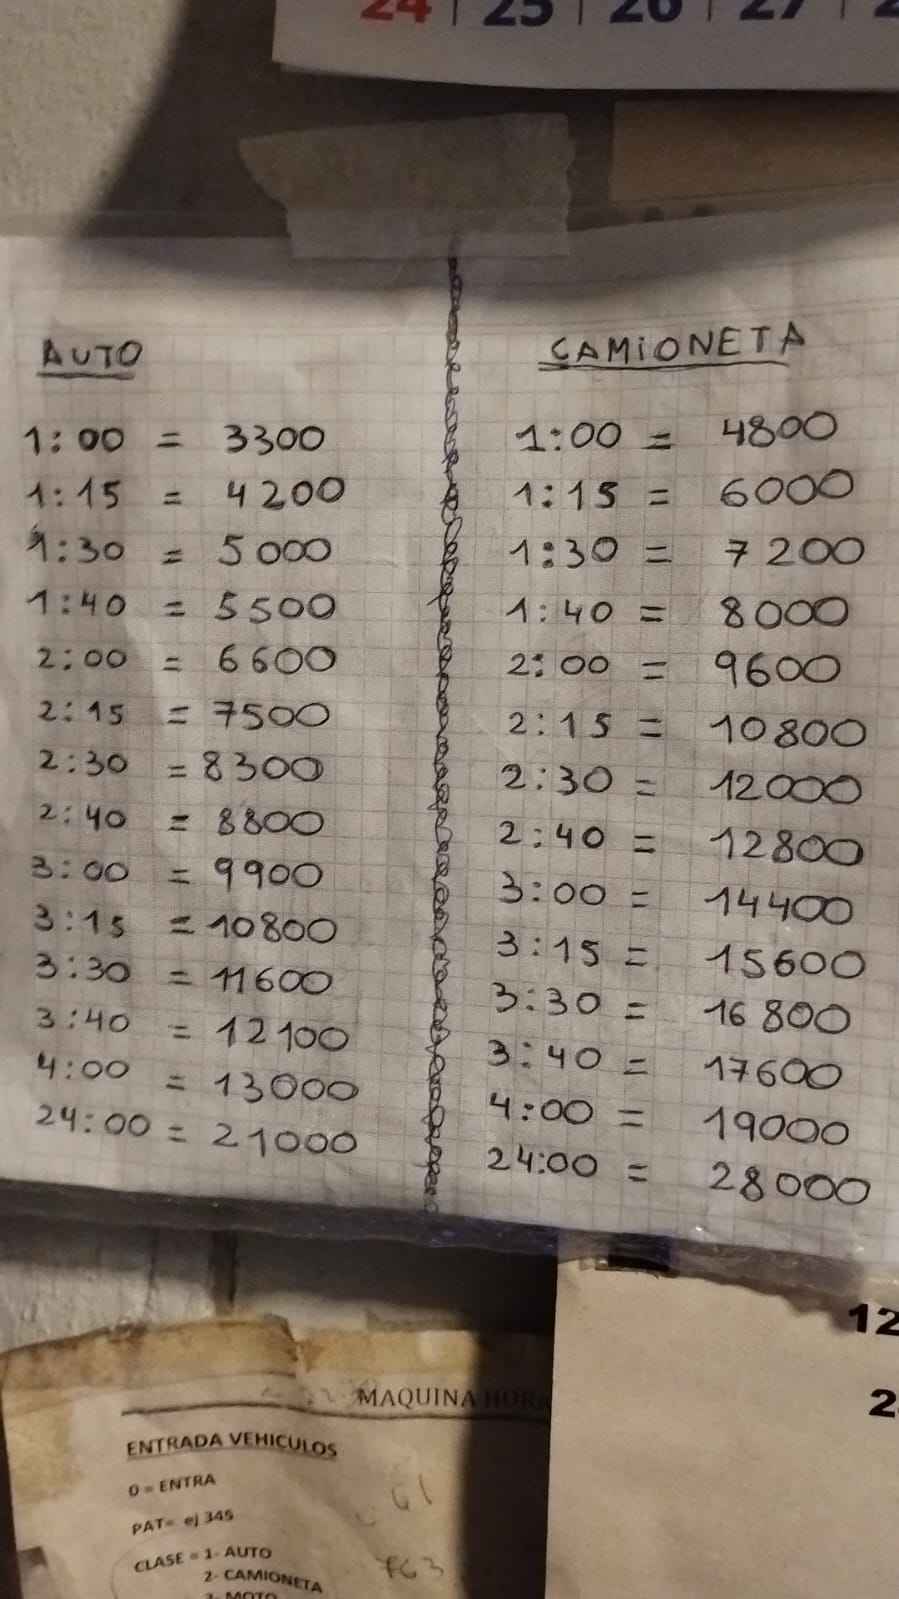 24 | 25 | 26 | 27
AUTO
1:00 = 3300
1:15 = 4200
1:30 = 5000
1:40 = 5500
2:00 = 6600
2:15 = 7500
2:30 = 8300
2:40 = 8800
3:00 = 9900
3:15 = 10800
3:30 = 11600
3:40 = 12100
4:00 = 13000
24:00 = 21000
CAMIONETA
1:00 = 4800
1:15 = 6000
1:30 = 7200
1:40 = 8000
2:00 = 9600
2:15 = 10800
2:30 = 12000
2:40 = 12800
3:00 = 14400
3:15 = 15600
3:30 = 16800
3:40 = 17600
4:00 = 19000
24:00 = 28000
12
2
MAQUINA
ENTRADA VEHICULOS
0 = ENTRA
PAT= ej 345
CLASE = 1- AUTO
2- CAMIONETA
3- MOTO